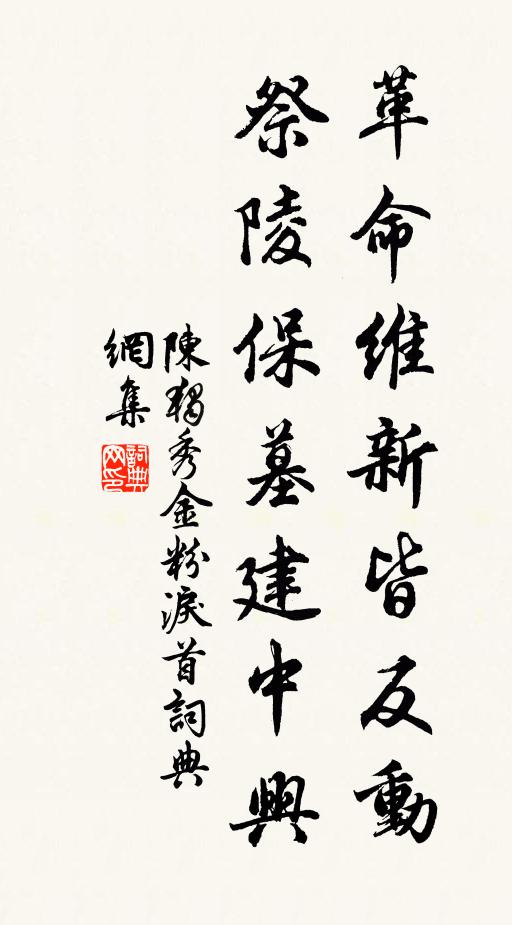 革命維新皆反動
祭陵保墓建中興
陳獨秀金粉淚首詞典
網集
詞典
网印